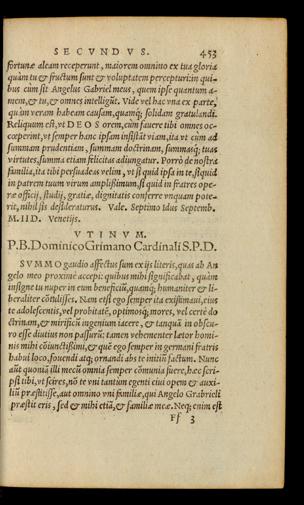 SECVNDVS. 453
fortunæ aleam receperunt, maiorem omnino ex tua gloria
quàm tu & fructum sunt & voluptatem percepturi: in qui-
bus cùm sit Angelus Gabriel meus, quem ipse quantum a-
mem, & tu, & omnes intelligũt. Vide vel hac vna ex parte,
quàm veram habeam causam, quamq; solidam gratulandi.
Reliquum est, vt DEOS orem, cùm fauere tibi omnes oc-
cœperint, vt semper hanc ipsam insistãt viam, ita vt cùm ad
summam prudentiam, summam doctrinam, summasq; tuas
virtutes, summa etiam felicitas adiungatur. Porrò de nostra
familia, ita tibi persuadeas velim, vt si quid ipsa in te, siquid
in patrem tuum virum amplißimum, si quid in fratres ope-
ræ officij, studij, gratiæ, dignitatis conferre vnquam pote-
rit, nihil sis desideraturus. Vale. Septimo Idus Septemb.
M.IID. Venetijs.
VTINVM.
P.B. Dominico Grimano Cardinali S.P.D.
SVMMO gaudio affectus sum ex ijs literis, quas ab An
gelo meo proximè accepi: quibus mihi significabat, quàm
insigne tu nuper in eum beneficiũ, quamq; humaniter & li-
beraliter cõtulisses. Nam etsi ego semper ita existimaui, eius
te adolescentis, vel probitatẽ, optimosq; mores, vel certè do
ctrinam, & mirificũ ingenium iacere, & tanquã in obscu-
ro esse diutius non passurũ: tamen vehementer lætor homi-
nis mihi cõiunctißimi, & quẽ ego semper in germani fratris
habui loco, fouendi atq; ornandi abs te initiũ factum. Nunc
aũt quoniã illi mecũ omnia semper cõmunia fuere, hæc scri-
psi tibi, vt scires, nõ te vni tantùm egenti ciui opem & auxi-
liũ præstitisse, aut omnino vni familiæ, qui Angelo Grabrieli
præstitеris, sed & mihi etiã, & familiæ meæ. Neq; enim est
Ff 3